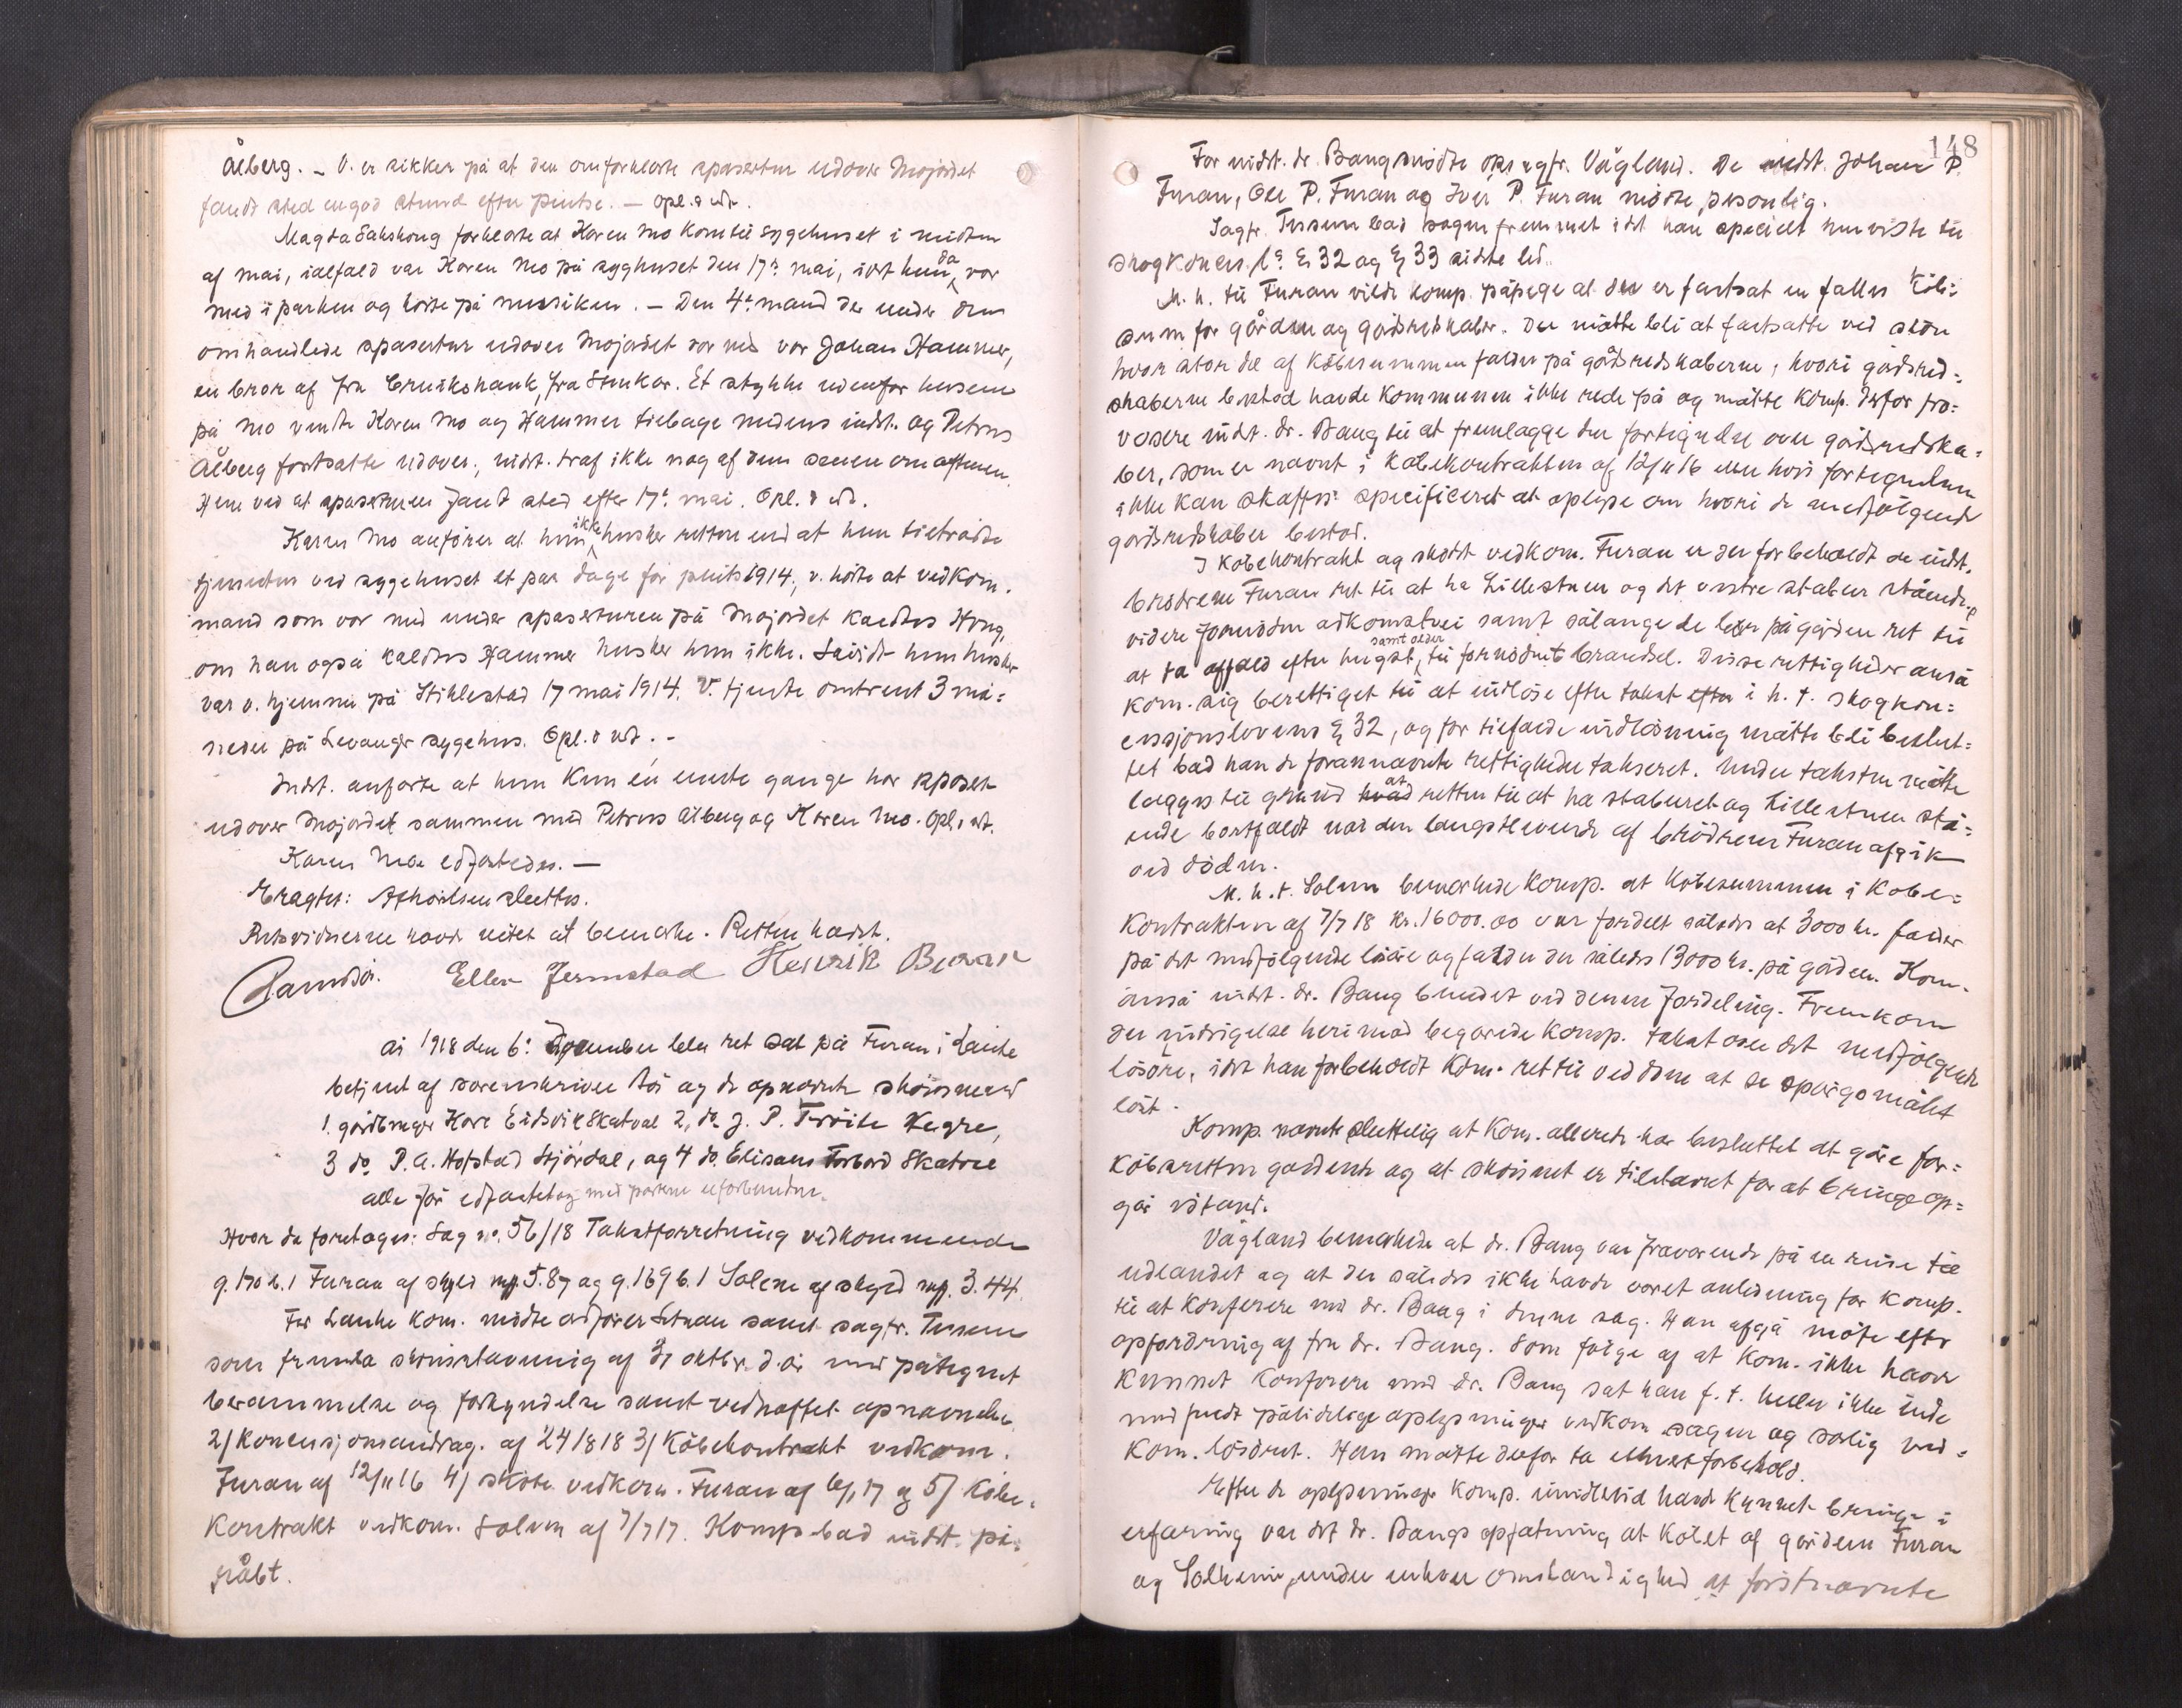 Ålberg. - V. er sikker på at den omforklarte spasertur udover Mojordet
fandt sted en god stund efter pintse. - Opl. & vedt.
Magda Sakshoug forklarte at Karen Mo kom til sygehuset i midten
af mai, ialfald var Karen Mo på syghuset den 17de mai, idet hun da var
med i parken og hörte på musiken. - Den 4de mand der under den
omhandlede spasertur udover Mojordet var med var Johan Hammer,
en bror af fru Cruikshank, fra Stenkær. Et stykke udenfor husene
på Mo vendte Karen Mo og Hammer tilbage medens indst. og Petrus
Ålberg fortsatte udover, indst. traf ikke nog af dem senere om aftenen.
Hun ved at spaserturen fandt sted efter 17de mai. Opl. & vedt.
Karen Mo anförer at hun ikke husker rettere end at hun tiltrådte
tjenesten ved sygehuset et par dage för pints 1914, v. hörte at vedkom.
mand som var med under spaserturen på Mojordet kaldtes Haug,
om han også kaldtes Hammer husker hun ikke. Såvidt hun husker
var v. hjemme på Stiklestad 17 mai 1914. V. tjente omtrent 3 må=
neder på Levanger sygehus. Opl. & vedt. -
Indst. anförte at hun kun en eneste gange har spaseret
udover Mojordet sammen med Petrus Ålberg og Karen Mo. Opl. & vedt.
Karen Moe edfæstedes. -
Eragtes: Afhörelsen sluttes.
Retsvidnerne havde intet at bemærke. Retten hævet.
Ellev Jermstad Henrik Buran
År 1918 den 6te december blev ret sat på Furan i Lånke
betjent af sorenskriver og de opnævnte skjönsmænd
1. gårdbruger Hare Eidsvik Skatval 2, do J. P. Tröite Hegre,
3 do P. A. Hofstad Stjördal, og 4 do Elisæus Forbord Skatval
alle för edfæstet og med parterne uforbundne.
Hvor da foretages: Sag no. 56/18 Takstforretning vedkommende
g. 170 b. 1 Furan af skyld mrk. 5.87 og g. 169 b. 1 Solem af skyld mrk. 3.44.
For Lånke kom. mödte ordförer samt sagfr. Tessem
som fremla skjönsstævning af 31 oktbr. d. år med påtegnet
berammelse og forkyndelse samt vedhæftet opnævnelse
2/ koncesjonsandrag. af 24/8 18 3/ Köbekontrakt vedkom.
Furan af 12/11 16 4/ sköte vedkom. Furan af 17 og 5/ Köbe=
kontrakt vedkom. Solem af 7/7 17. Komp. bad indst. på=
råbt.
148
For indst. dr. Bang mödte sagfr. Vågland. De indst. Johan P.
Furan, Ole P. Furan og Iver P. Furan mödte personlig.
Sagfr. Tessem bad sagen fremmet idet han specielt henviste til
skogkonces. l. § 32 og § 33 sidste led.
M. h. til Furan vilde komp. påpege at der er fastsat en fælles köbe=
sum for gården og gårdsredskaber. Der måtte bli at fastsætte ved skön
hvor stor del af köbesummen falder på gårdsredskaberne, hvori gårdsred=
skaberne bestod havde kommunen ikke rede på og måtte komp. derfor pro=
vosere indst. dr. Bang til at fremlægge den fortegnelse over gårdsredska=
ber, som er nævnt i köbekontrakten af 12/11 16 eller hvis fortegnelsen
ikke kan skaffes specificeret at oplyse om hvori de medfölgende
gårdsredskaber bestod.
I köbekontrakt og sköte vedkom. Furan er der forbeholdt de indst.
brödrene Furan ret til at ha Lillestuen og det vestre stabur stående,
videre fornöden adkomstvei samt sålænge de lever på gården ret til
at ta affald efter hugst samt older til fornödent brændsel. Disse rettigheder anså
kom. sig berettiget til at indlöse efter takst efter i h. t. skogkon=
cessjonslovens § 32, og for tilfælde indlösning måtte bli beslut=
tet bad han de forannævnte rettigheder takseret. Under taksten måtte
lægges til grund hvad at retten til at ha staburet og Lillestuen stå=
ende bortfaldt når den længstlevende af brödrene Furan afgik
ved döden.
M. h. t. Solem bemærkede komp. at köbesummen i köbe=
kontrakten af 7/7 18 kr. 16000.00 var fordelt således at 3000 kr. falder
på det medfölgende lösöre og falder der således 13000 kr. på gården. Kom.
anså indst. dr. Bang bundet ved denne fordeling. Fremkom
der indsigelse herimod begjærede komp. takst over det medfölgende
lösöre, idet han forbeholdt kom. ret til ved dom at se spörgsmålet
löst.
Komp. nævnte sluttelig at kom. allerede har besluttet at göre for=
köbsretten gældende og at skjönnet er tilstævnet for at bringe op=
gör istand.
Vågland bemærkede at dr. Bang var fraværende på en reise til
udlandet og at der således ikke havde været anledning for komp.
til at konferere med dr. Bang i denne sag. Han afgå möte efter
opfordring af fru dr. Bang. Som fölge af at kom. ikke havde
kunnet konferere med dr. Bang sat han f. t. heller ikke inde
med fuldt pålidelige oplysninger vedkom. sagen og særlig ved=
kom. lösöret. Han måtte derfor ta ethvert forbehold.
Efter de oplysninger komp. imidlertid havde kunnet bringe i
erfaring var det dr. Bangs opfatning at köbet af gårdene Furan
og Solheim, under enhver omstændighed at förstnævnte